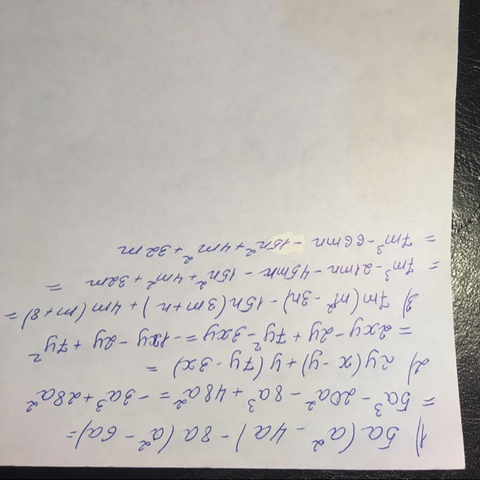 1) 5a(a² - 4a) - 8a(a² - 6a) =
= 5a³ - 20a² - 8a³ + 48a² = -3a³ + 28a²
2) 2y(x - y) + y(7y - 3x) =
= 2xy - 2y + 7y² - 3xy = -xy - 2y + 7y²
3) 7m(m² - 3n) - 15n(3m + n) + 4m(m + 8) =
= 7m³ - 21mn - 45mn - 15n² + 4m² + 32m =
= 7m³ - 66mn - 15n² + 4m² + 32m